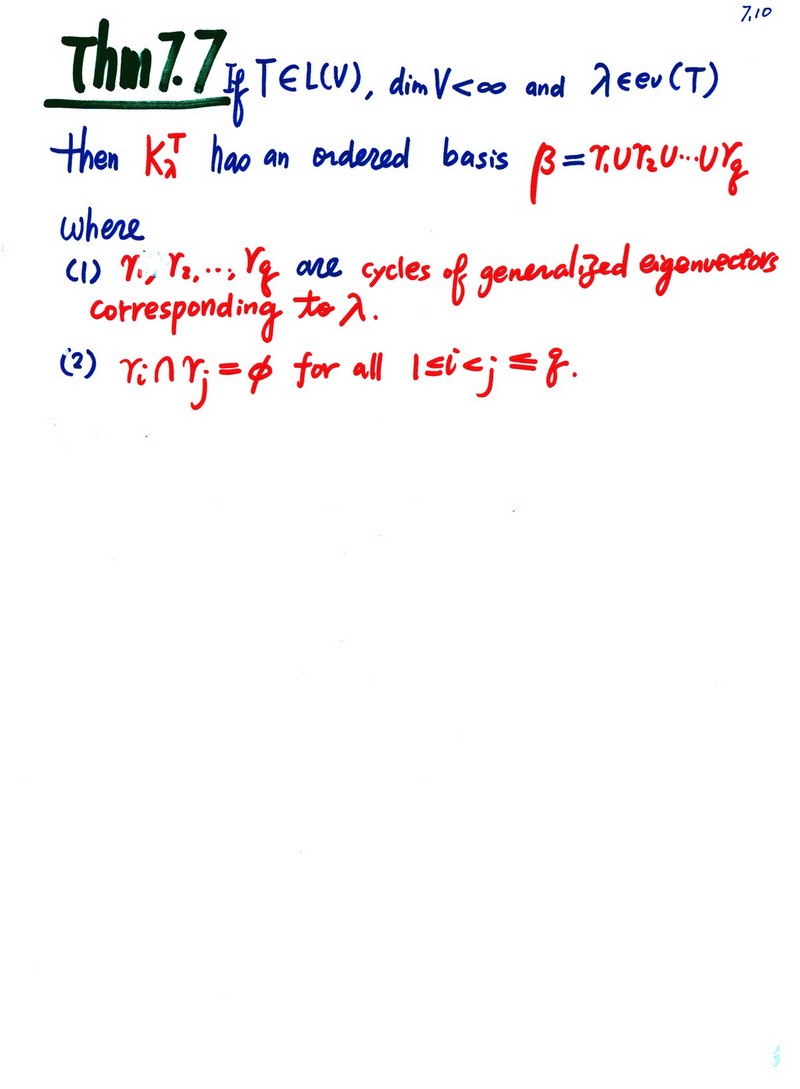 7.10
Thm 7.7 If T∈L(V), dim V<∞ and λ∈ev(T)
then K_λ^T has an ordered basis β=γ₁∪γ₂∪···∪γ_q
where
(1) γ₁, γ₂, ..., γ_q are cycles of generalized eigenvectors
corresponding to λ.
(2) γᵢ∩γⱼ=φ for all 1≤i<j≤q.